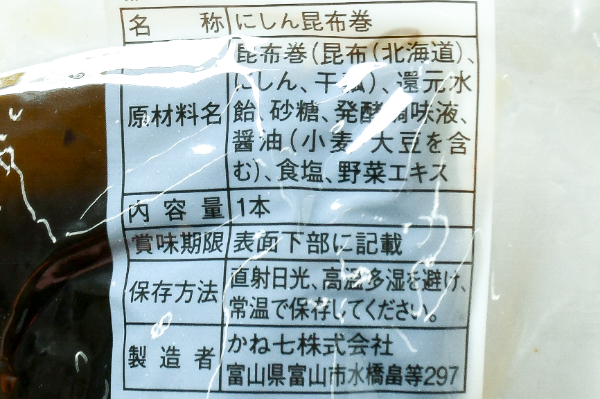 名称 にしん昆布巻
昆布巻(昆布(北海道)、
にしん、干瓢)、還元水
原材料名 飴、砂糖、発酵調味液、
醤油(小麦、大豆を含
む)、食塩、野菜エキス
内容量 1本
賞味期限 表面下部に記載
保存方法 直射日光、高温多湿を避け、
常温で保存してください。
製造者 かね七株式会社
富山県富山市水橋畠等297